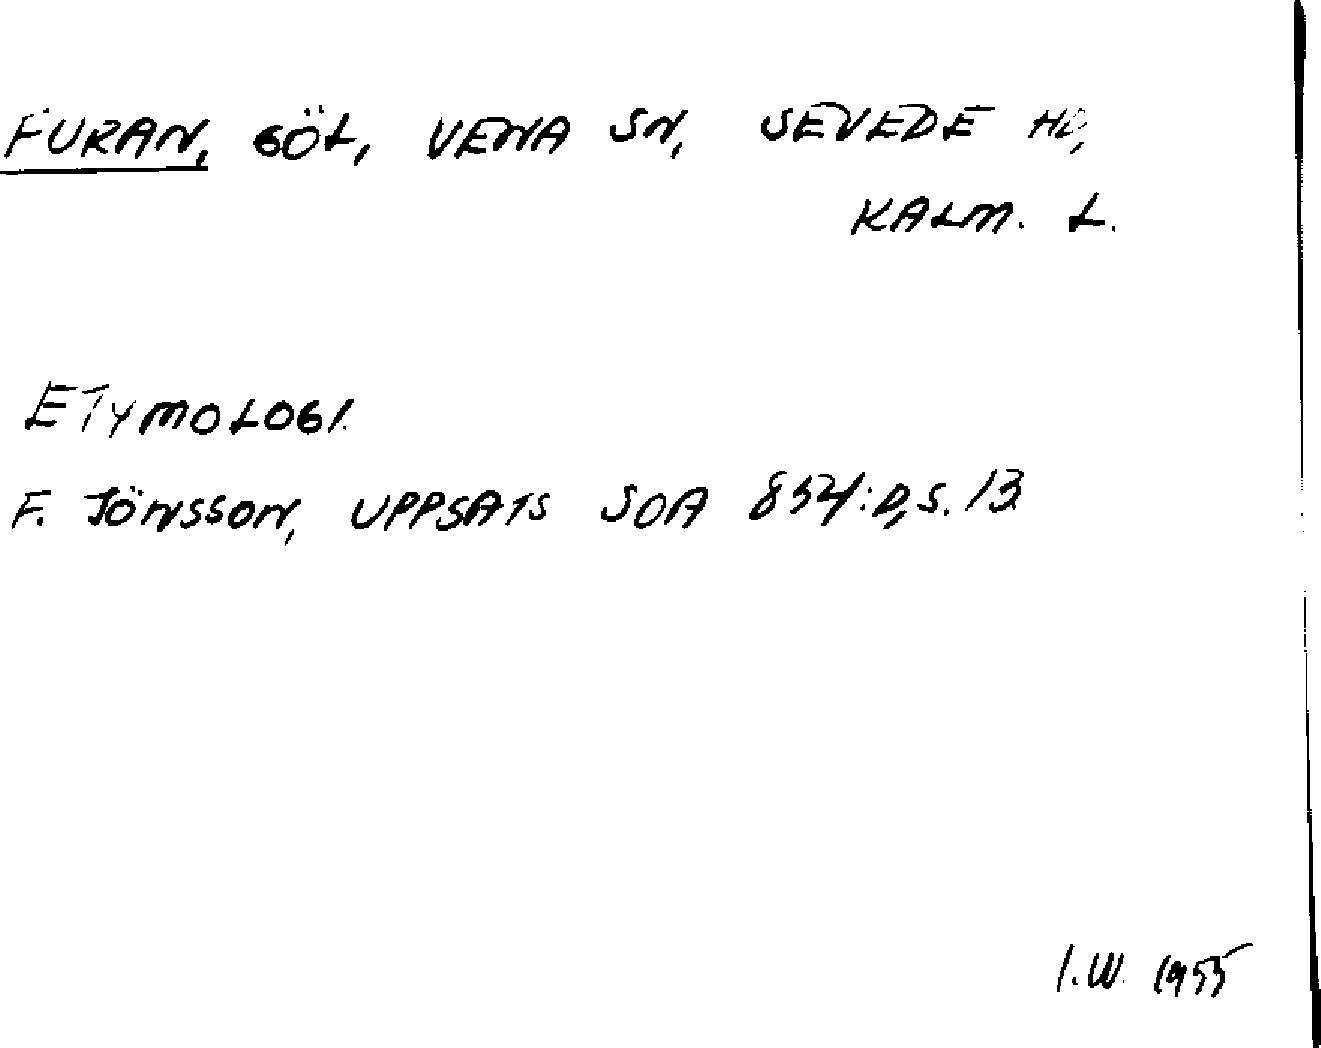 FURAN, GÖL, VENA SN, SEVEDE HD,
KALM. L.
ETYMOLOGI.
F. JÖNSSON, UPPSATS SOA 854:D, S. 13
I.W. 1955